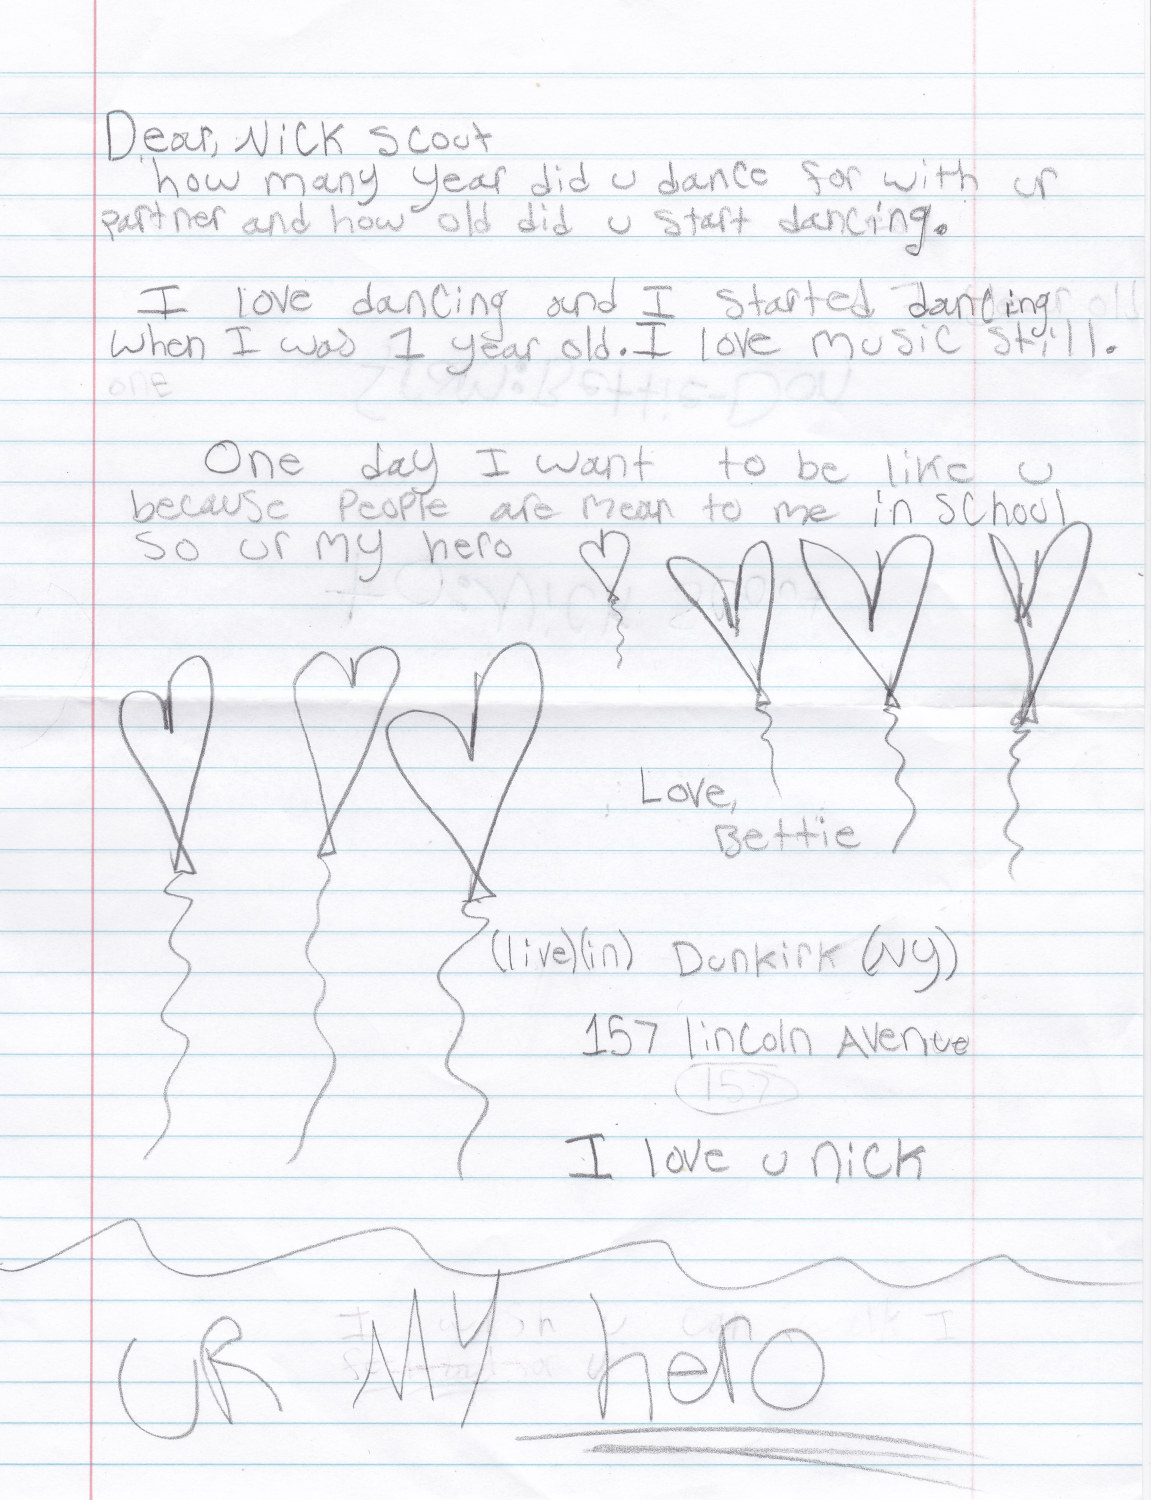 Dear, Nick Scout
how many year did u dance for with ur
partner and how old did u start dancing.
I love dancing and I started dancing
when I was 1 year old. I love music still.
one
One day I want to be like u
because People are mean to me in School
So ur my hero
Love,
Bettie
(live)(in) Dunkirk (NY)
157 lincoln Avenue
157
I love u nick
UR MY hero